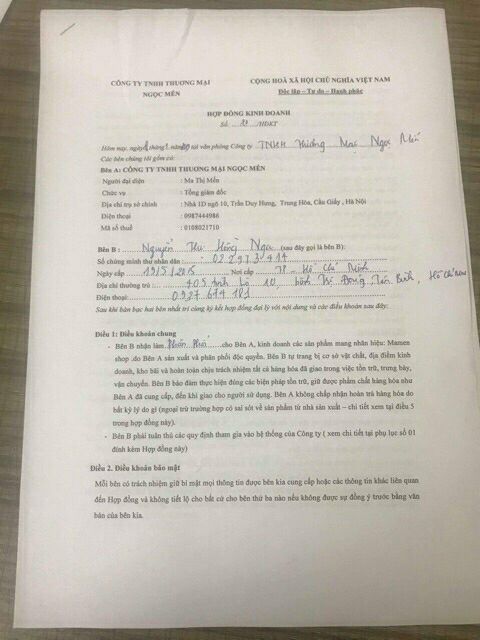 CÔNG TY TNHH THƯƠNG MẠI
NGỌC MẾN
CỘNG HOÀ XÃ HỘI CHỦ NGHĨA VIỆT NAM
Độc lập – Tự do – Hạnh phúc
HỢP ĐỒNG KINH DOANH
Số /HĐKT
Hôm nay, ngày tháng năm tại văn phòng Công ty TNHH Thương Mại Ngọc Mến
Các bên chúng tôi gồm có:
Bên A: CÔNG TY TNHH THƯƠNG MẠI NGỌC MẾN
Người đại diện : Ma Thị Mến
Chức vụ : Tổng giám đốc
Địa chỉ trụ sở chính : Nhà 1D ngõ 10, Trần Duy Hưng, Trung Hòa, Cầu Giấy , Hà Nội
Điện thoại : 0987444986
Mã số thuế : 0108021710
Bên B : Nguyễn Thị Hồng Nga (sau đây gọi là bên B):
Số chứng minh thư nhân dân : 022973414
Ngày cấp 19/5/2015 Nơi cấp TP - Hồ Chí Minh
Địa chỉ thường trú : 405 tỉnh lộ 10, Bình Trị Đông, , Hồ Chí Minh
Điện thoại: 0927674181
Sau khi bàn bạc hai bên nhất trí cùng ký kết hợp đồng đại lý với nội dung và các điều khoản sau đây:
Điều 1: Điều khoản chung
- Bên B nhận làm Phân Phối cho Bên A, kinh doanh các sản phẩm mang nhãn hiệu: Mamen
shop .do Bên A sản xuất và phân phối độc quyền. Bên B tự trang bị cơ sở vật chất, địa điểm kinh
doanh, kho bãi và hoàn toàn chịu trách nhiệm tất cả hàng hóa đã giao trong việc tồn trữ, trưng bày,
vận chuyển. Bên B bảo đảm thực hiện đúng các biện pháp tồn trữ, giữ được phẩm chất hàng hóa như
Bên A đã cung cấp, đến khi giao cho người sử dụng. Bên A không chấp nhận hoàn trả hàng hóa do
bất kỳ lý do gì (ngoại trừ trường hợp có sai sót về sản phẩm từ nhà sản xuất – chi tiết xem tại điều 5
trong hợp đồng này).
- Bên B phải tuân thủ các quy định tham gia vào hệ thống của Công ty ( xem chi tiết tại phụ lục số 01
đính kèm Hợp đồng này)
Điều 2. Điều khoản bảo mật
Mỗi bên có trách nhiệm giữ bí mật mọi thông tin được bên kia cung cấp hoặc các thông tin khác liên quan
đến Hợp đồng và không tiết lộ cho bất cứ cho bên thứ ba nào nếu không được sự đồng ý trước bằng văn
bản của bên kia.